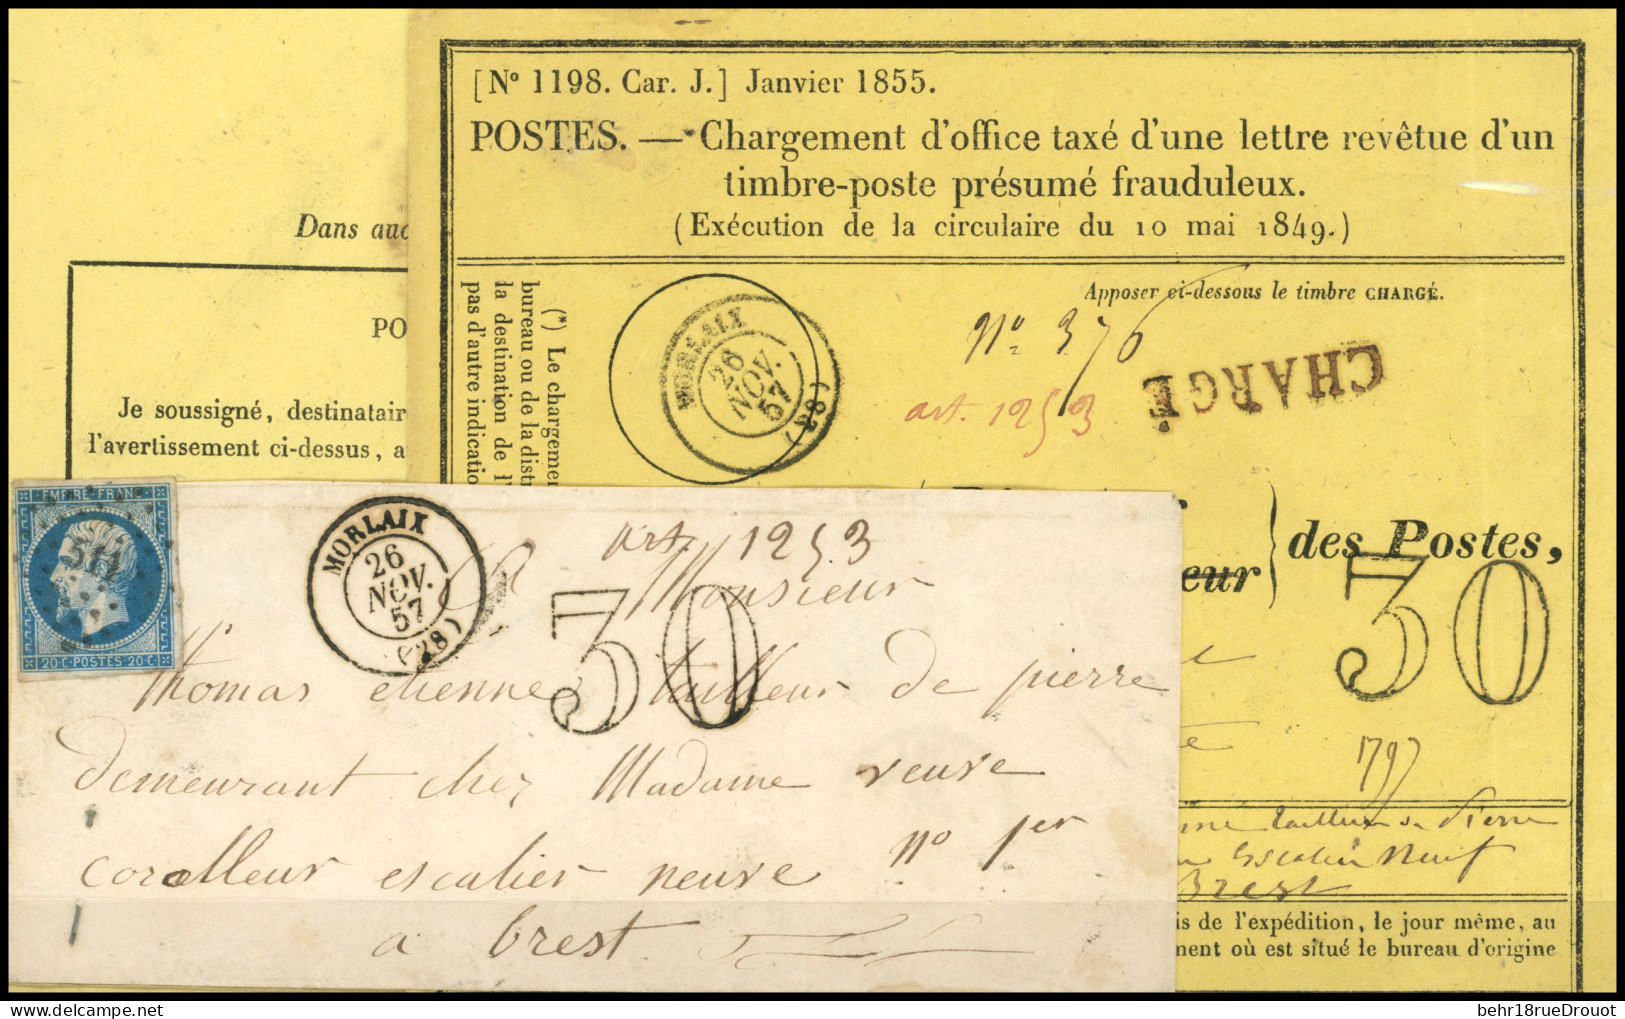 [N° 1198. Car. J.] Janvier 1855.
POSTES. — Chargement d'office taxé d'une lettre revêtue d'un
timbre-poste présumé frauduleux.
(Exécution de la circulaire du 10 mai 1849.)
Apposer ci-dessous le timbre CHARGÉ.
N° 376
art. 1253
CHARGÉ
MORLAIX
26
NOV.
57
(28)
(*) Le chargeme
bureau ou de la distr
la destination de l'
pas d'autre indicatio
Dans auc
PO
Je soussigné, destinatair
l'avertissement ci-dessus, a
des Postes,
eur
30
1797
tailleur de Pierre
Escalier Neuf
Brest
is de l'expédition, le jour même, au
ment où est situé le bureau d'origine
EMPIRE FRANC
511
20 C. POSTES 20 C.
MORLAIX
26
NOV.
57
(28)
art. 1253
A Monsieur
30
thomas etienne tailleur de pierre
demeurant chez Madame veuve
coroelleur escalier neuve n° 1er
a brest
delcampe.net
behr18rueDrouot